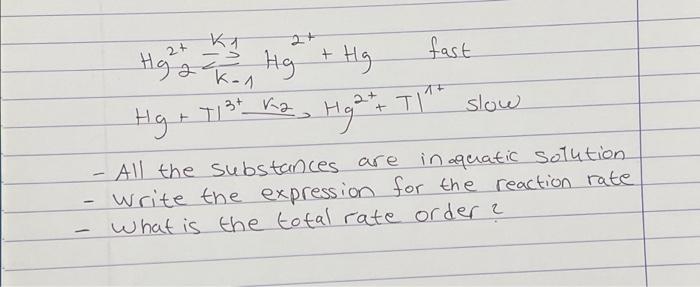 Hg₂²⁺ ⇌ Hg²⁺ + Hg fast
K1
K-1
Hg + Tl³⁺ K2→ Hg²⁺ + Tl¹⁺ slow
- All the substances are in aquatic solution
- Write the expression for the reaction rate
- What is the total rate order?